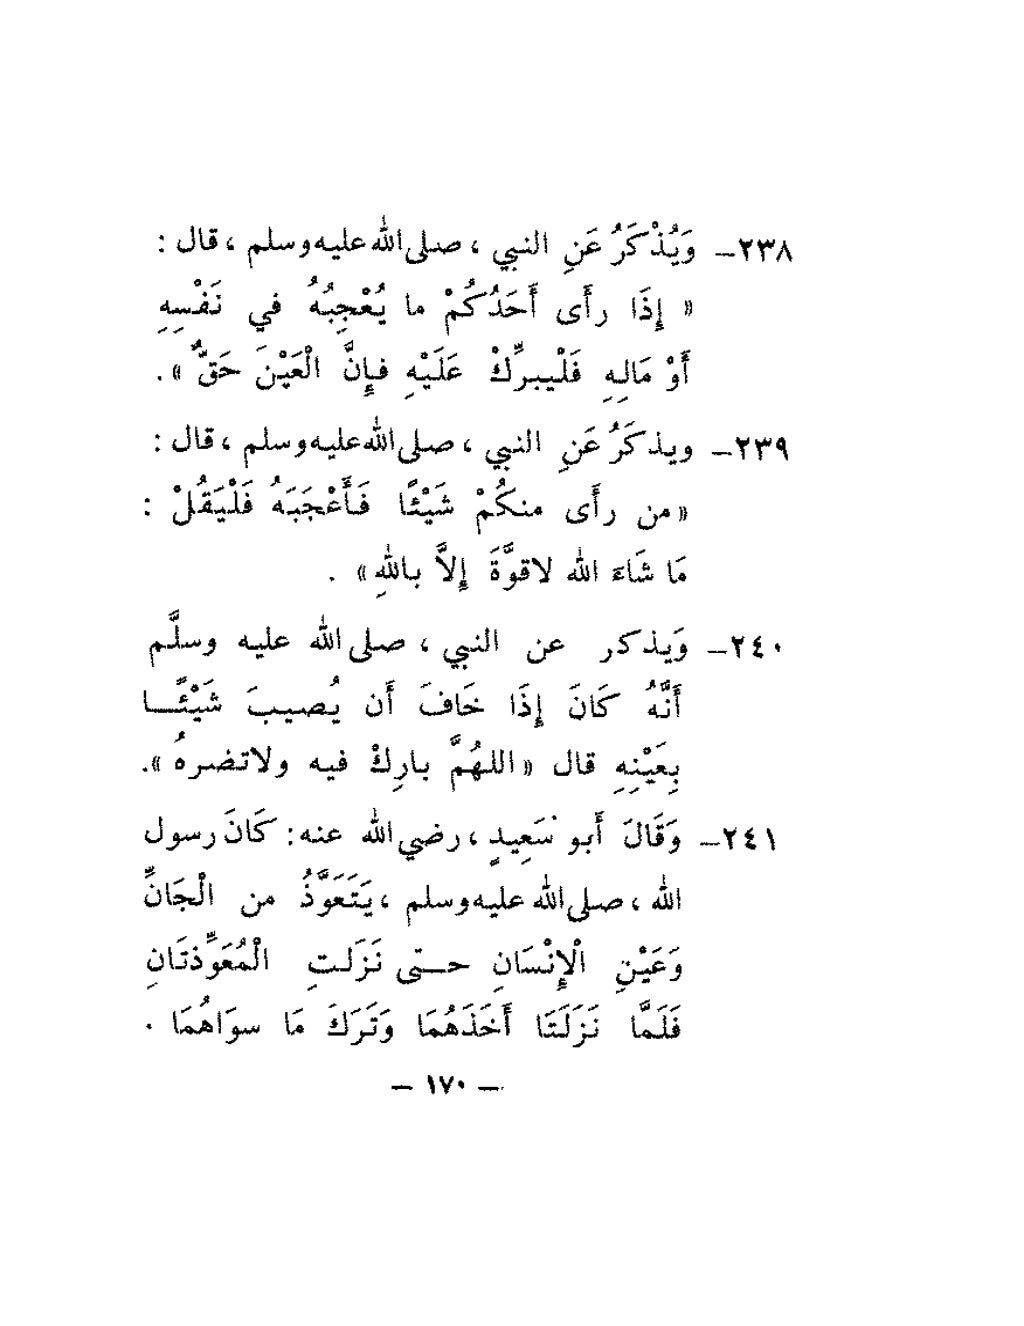 ٢٣٨ــ وَيُذْكَرُ عَنِ النبي ، صلى الله عليه وسلم ، قال :
« إِذَا رأَى أَحَدُكُمْ ما يُعْجِبُهُ في نَفْسِهِ
أَوْ مَالِهِ فَلْيبرِّكْ عَلَيْهِ فإِنَّ الْعَيْنَ حَقٌّ » .
٢٣٩ــ ويذكَرُ عَنِ النبي ، صلى الله عليه وسلم ، قال :
« من رأَى منكُمْ شَيْئًا فَأَعْجَبَهُ فَلْيَقُلْ :
مَا شَاءَ الله لاقوَّةَ إِلاَّ باللهِ » .
٢٤٠ــ وَيذكر عن النبي ، صلى الله عليه وسلَّم
أَنَّهُ كَانَ إِذَا خَافَ أَن يُصيبَ شَيْئًــا
بِعَيْنِهِ قال « اللهُمَّ بارِكْ فيه ولاتضرهُ » .
٢٤١ــ وَقَالَ أَبو سَعِيدٍ ، رضي الله عنه : كَانَ رسول
الله ، صلى الله عليه وسلم ، يَتَعَوَّذُ من الْجَانِّ
وَعَيْنِ الْإِنْسَانِ حــتى نَزَلتِ الْمُعَوِّذتَانِ
فَلَمَّا نَزَلَتَا أَخَذَهُمَا وَتَرَكَ مَا سوَاهُمَا .
ــ ١٧٠ ــ